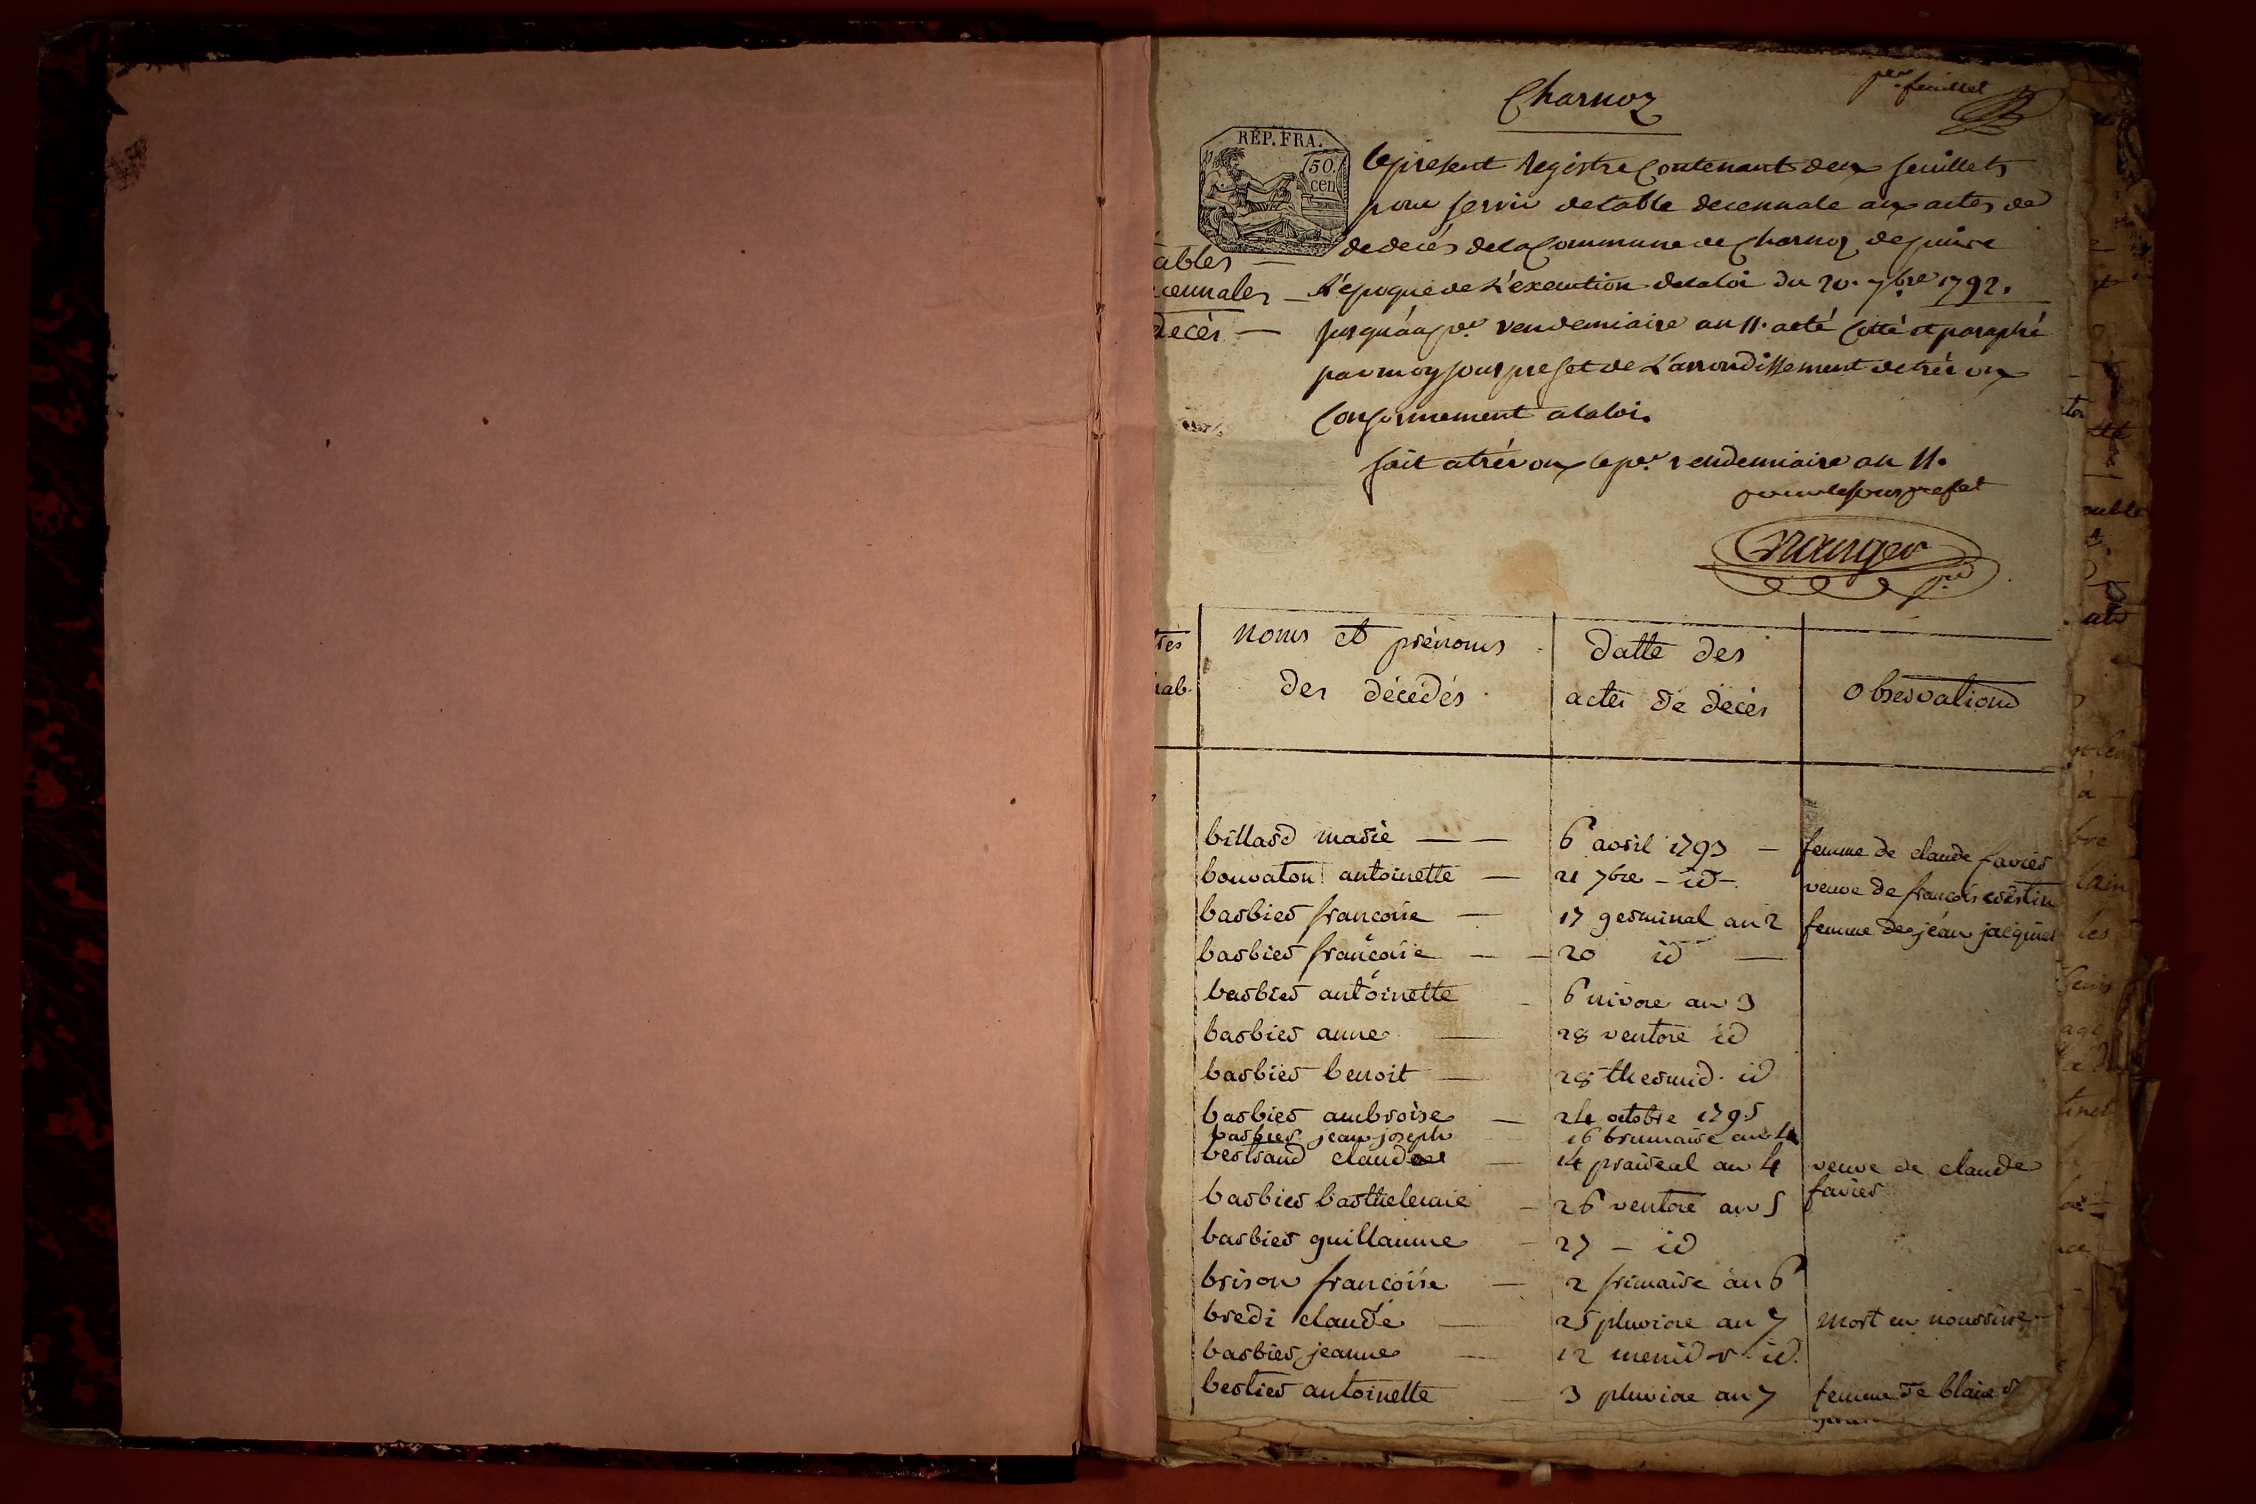 Charnoz
per feuillet
REP. FRA.
50.
cen
le present Registre Contenant deux feuillets
pour servir de table decennale aux actes de
de decés de la Commune de Charnoz depuis
ables —
L'époque de L'execution de la loi du 20. 7bre 1792.
cennales —
decés —
jusqu'au per vendemiaire an 11. acté Cotté et paraphé
par moy sous prefet de L'arrondissement de trévoux
Conformement a la loi.
fait a trévoux le per vendemiaire an 11.
pour le sous prefet
noms et prénoms
des décédés.
datte des
actes de décès
observations
billard marie — — 6 avril 1793 — femme de claude favier
bouvaton antoinette — 21 7bre - id - veuve de francois
barbier francoise — 17 germinal an 2 femme de jean jacquier
barbier francoise — — 20 id —
barbier antoinette - 6 nivose an 3
barbier anne — 28 ventose id
barbier benoit — 28 thermid. id
barbier ambroise — 24 octobre 1795
barbier jean joseph 16 brumaire an 4
bertrand claudine — 14 prairial an 4 veuve de claude
favier
barbier barthelemie - 26 ventose an 5
barbier guillaume - 27 - id
brison francoise — 2 frimaire an 6
bredi claude — 25 pluviose an 7 mort en nourrice
barbier jeanne — 12 messid r id.
bertier antoinette — 3 pluviose an 7 femme de blaise